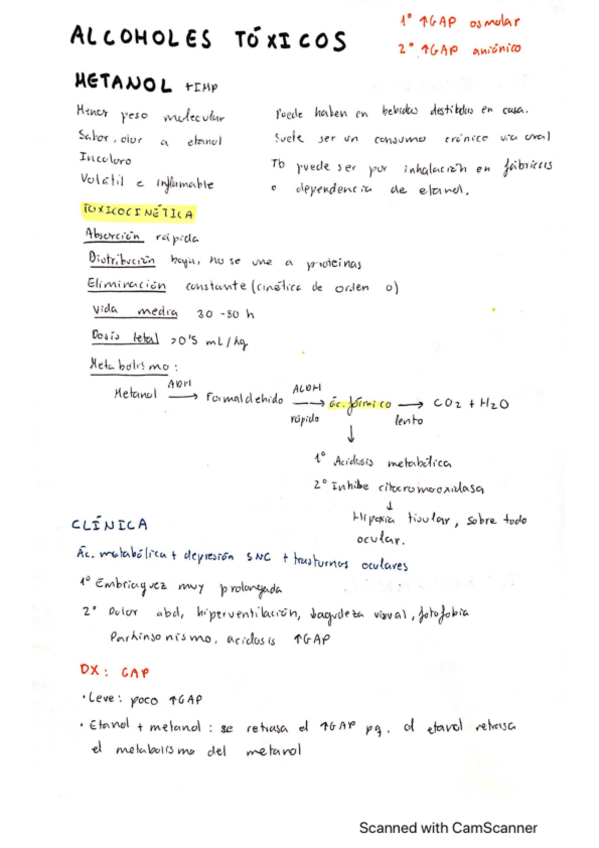 ALCOHOLES TÓXICOS
1º ↑GAP osmolar
2º ↑GAP aniónico
METANOL +IMP
Menor peso molecular
Sabor, olor a etanol
Incoloro
Volátil e inflamable
Puede haber en bebidas destiladas en casa.
Suele ser un consumo crónico vía oral
Tb puede ser por inhalación en fábricas
o dependencia de etanol.
TOXICOCINÉTICA
Absorción rápida
Distribución baja, no se une a proteínas
Eliminación constante (cinética de orden 0)
Vida media 30-50 h
Dosis letal >0'5 mL/kg
Metabolismo:
Metanol ADH → Formaldehído ALDH → ác. fórmico → CO2 + H2O
rápido lento
↓
1º Acidosis metabólica
2º Inhibe citocromooxidasa
↓
Hipoxia tisular, sobre todo
ocular.
CLÍNICA
Ác. metabólica + depresión SNC + trastornos oculares
1º Embriaguez muy prolongada
2º Dolor abd, hiperventilación, ↓agudeza visual, fotofobia
Parkinsonismo, acidosis ↑GAP
DX: GAP
· Leve: poco ↑GAP
· Etanol + metanol: se retrasa el ↑GAP pq. el etanol retrasa
el metabolismo del metanol
Scanned with CamScanner